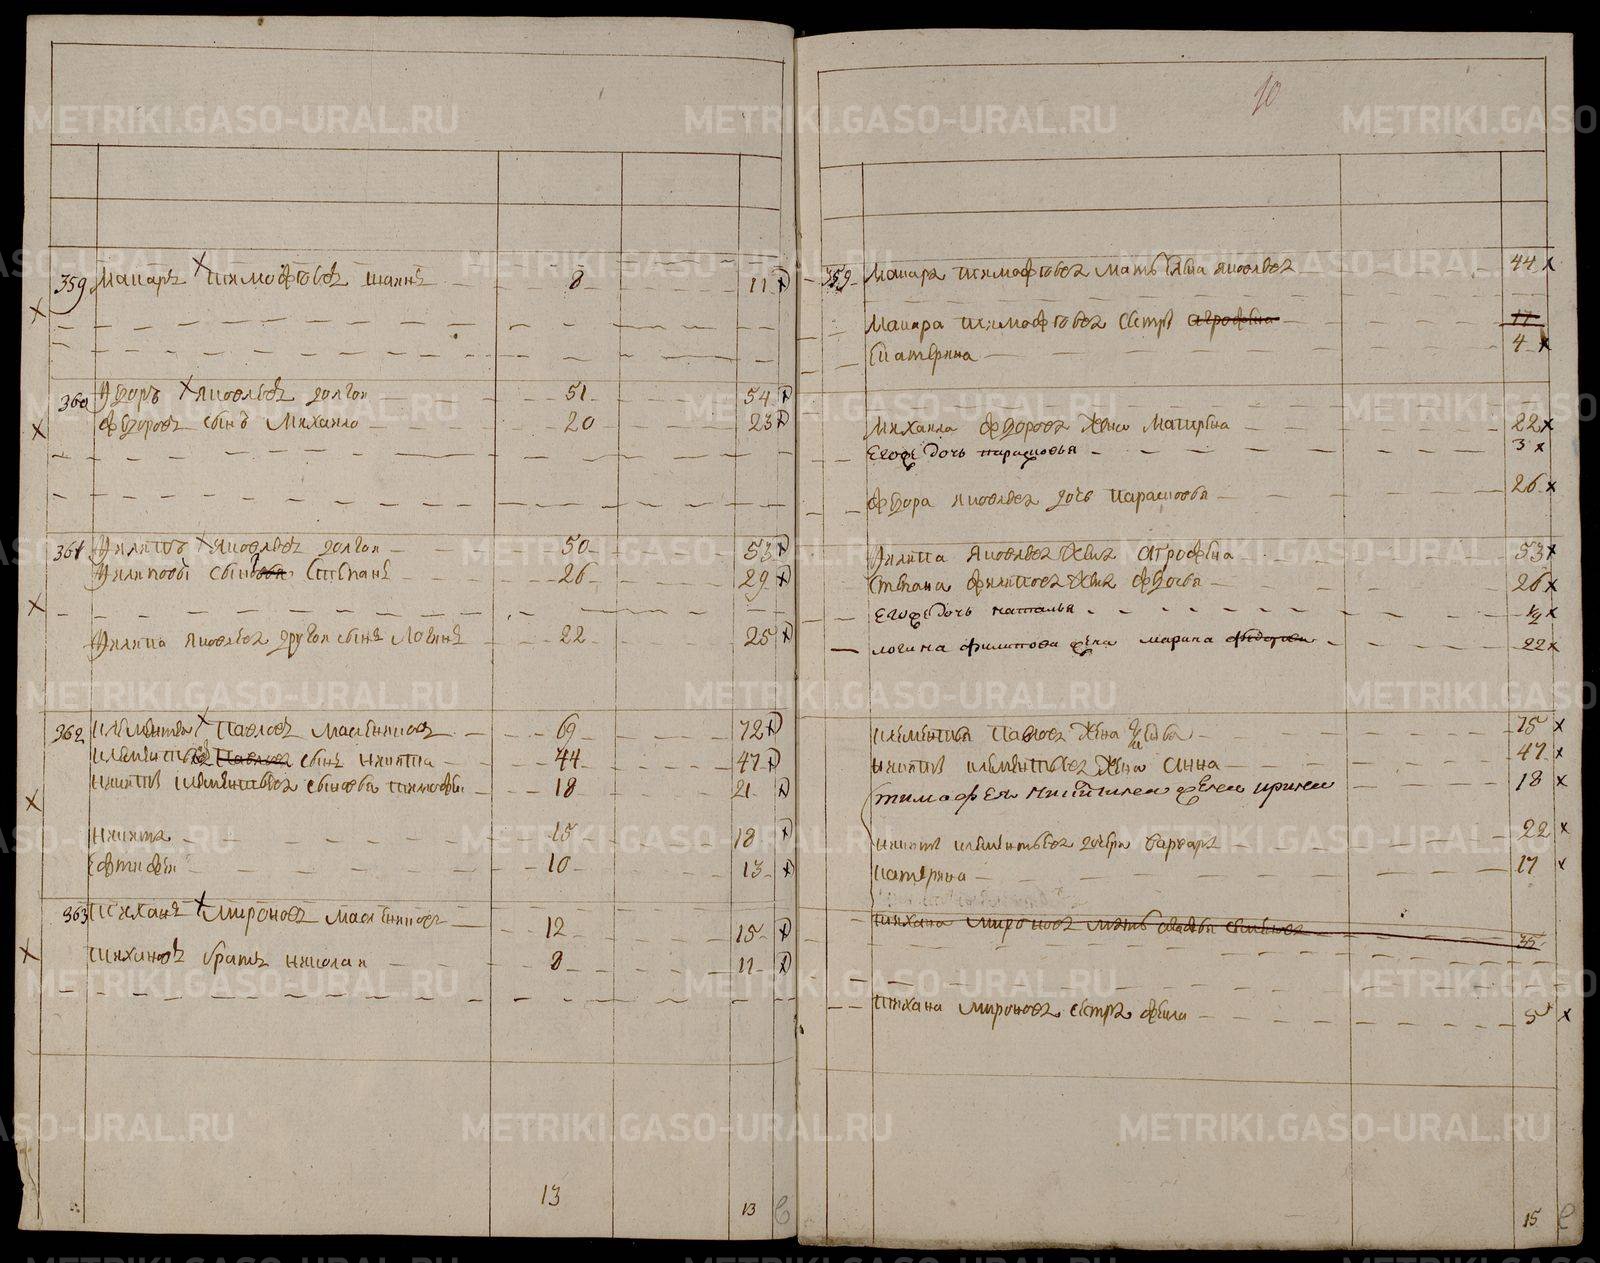 359 Макаръ Тимофѣевъ 8 11
360 Ѳедоръ Яковлевъ долгой 51 54
Ѳедоровъ сынъ Михайло 20 23
361 Филипъ Яковлевъ долгой 50 53
Филиповъ сынъ Степанъ 26 29
Филипа Яковлева другой сынъ Логинъ 22 25
362 Клементей Павловъ Масленниковъ 69 72
Клементьевъ Павловъ сынъ Никита 44 47
Никиты Клементьева сыновья Тимофей 18 21
Никита 15 18
Евтифей 10 13
363 Тиханъ Мироновъ Масленниковъ 12 15
Тихановъ братъ Николай 8 11
13 13
10
359 Макара Тимофеева мать Яковлева 44
Макара Тимофеева сестры Агрофена 11
Катерина 4
Михаила Федорова жена Матирена 22
Его дочь парасковья 3
Федора Яковлева дочь Парасковья 26
Филипа Яковлева жена Агрофена 53
Степана Филипова жена Федосья 26
Его дочь наталья 1/2
логина филипова жена марина 22
Клементья Павлова жена 75
Никиты Клементьева жена Анна 47
тимафея Никитина жена ирина 18
Никиты Клементьева дочери Варвара 22
Катерина 17
Тихана Миронова мать 35
Тихана Миронова сестра 5
15
METRIKI.GASO-URAL.RU